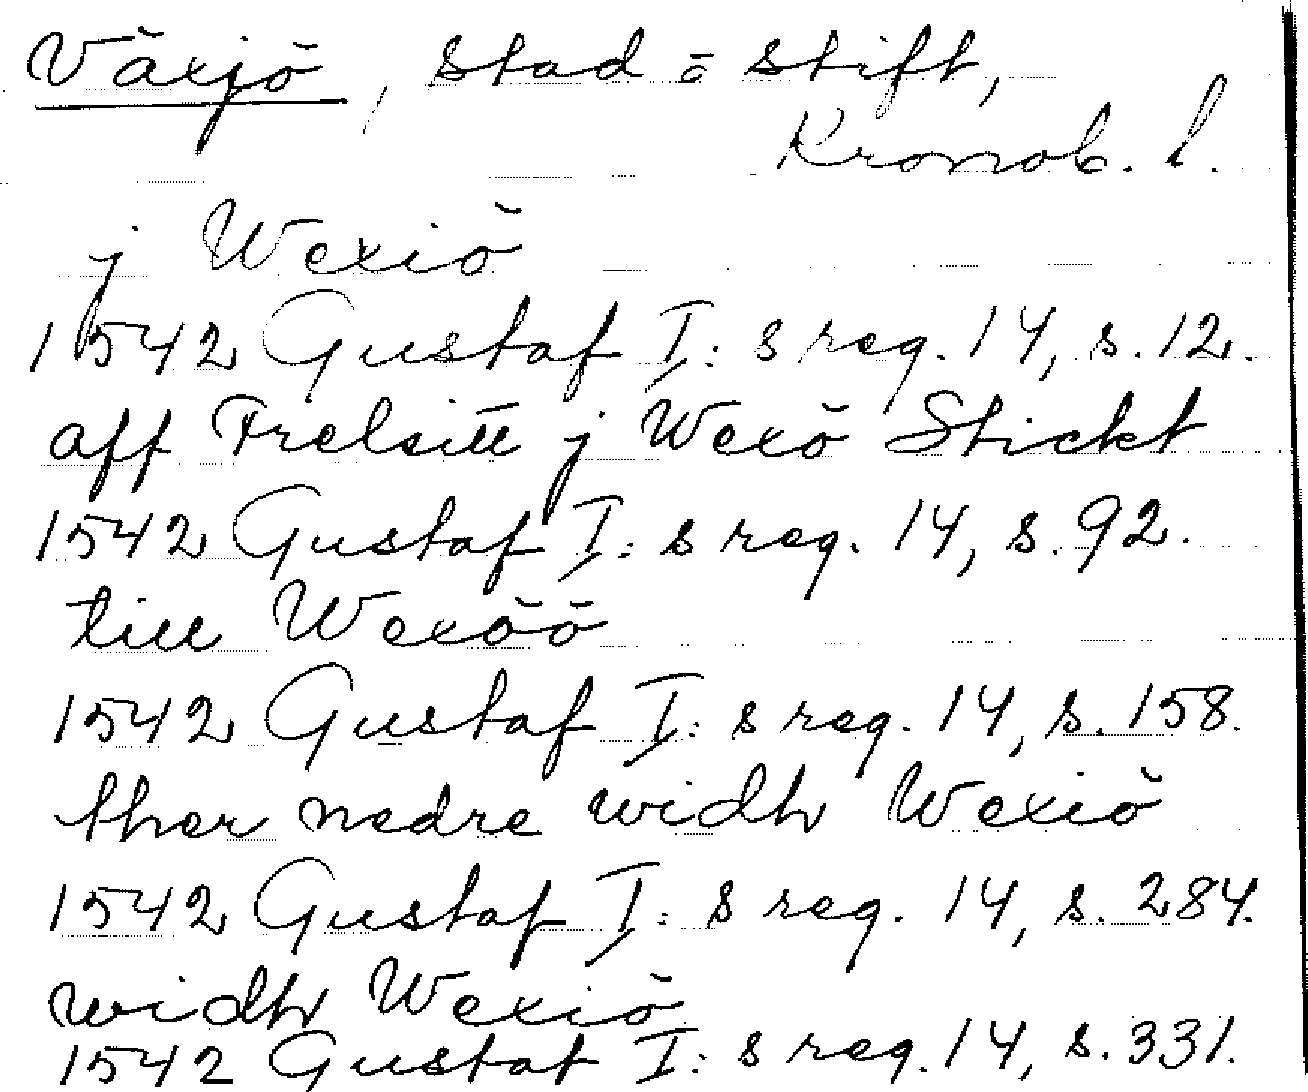 Växjö, stad o stift,
Kronob. l.
j Wexiö
1542 Gustaf I: s reg. 14, s. 12.
aff Frelsitt j Wexö Stickt
1542 Gustaf I: s reg. 14, s. 92.
till Wexöö
1542 Gustaf I: s reg. 14, s. 158.
ther nedre widh Wexiö
1542 Gustaf I: s reg. 14, s. 284.
widh Wexiö
1542 Gustaf I: s reg. 14, s. 331.